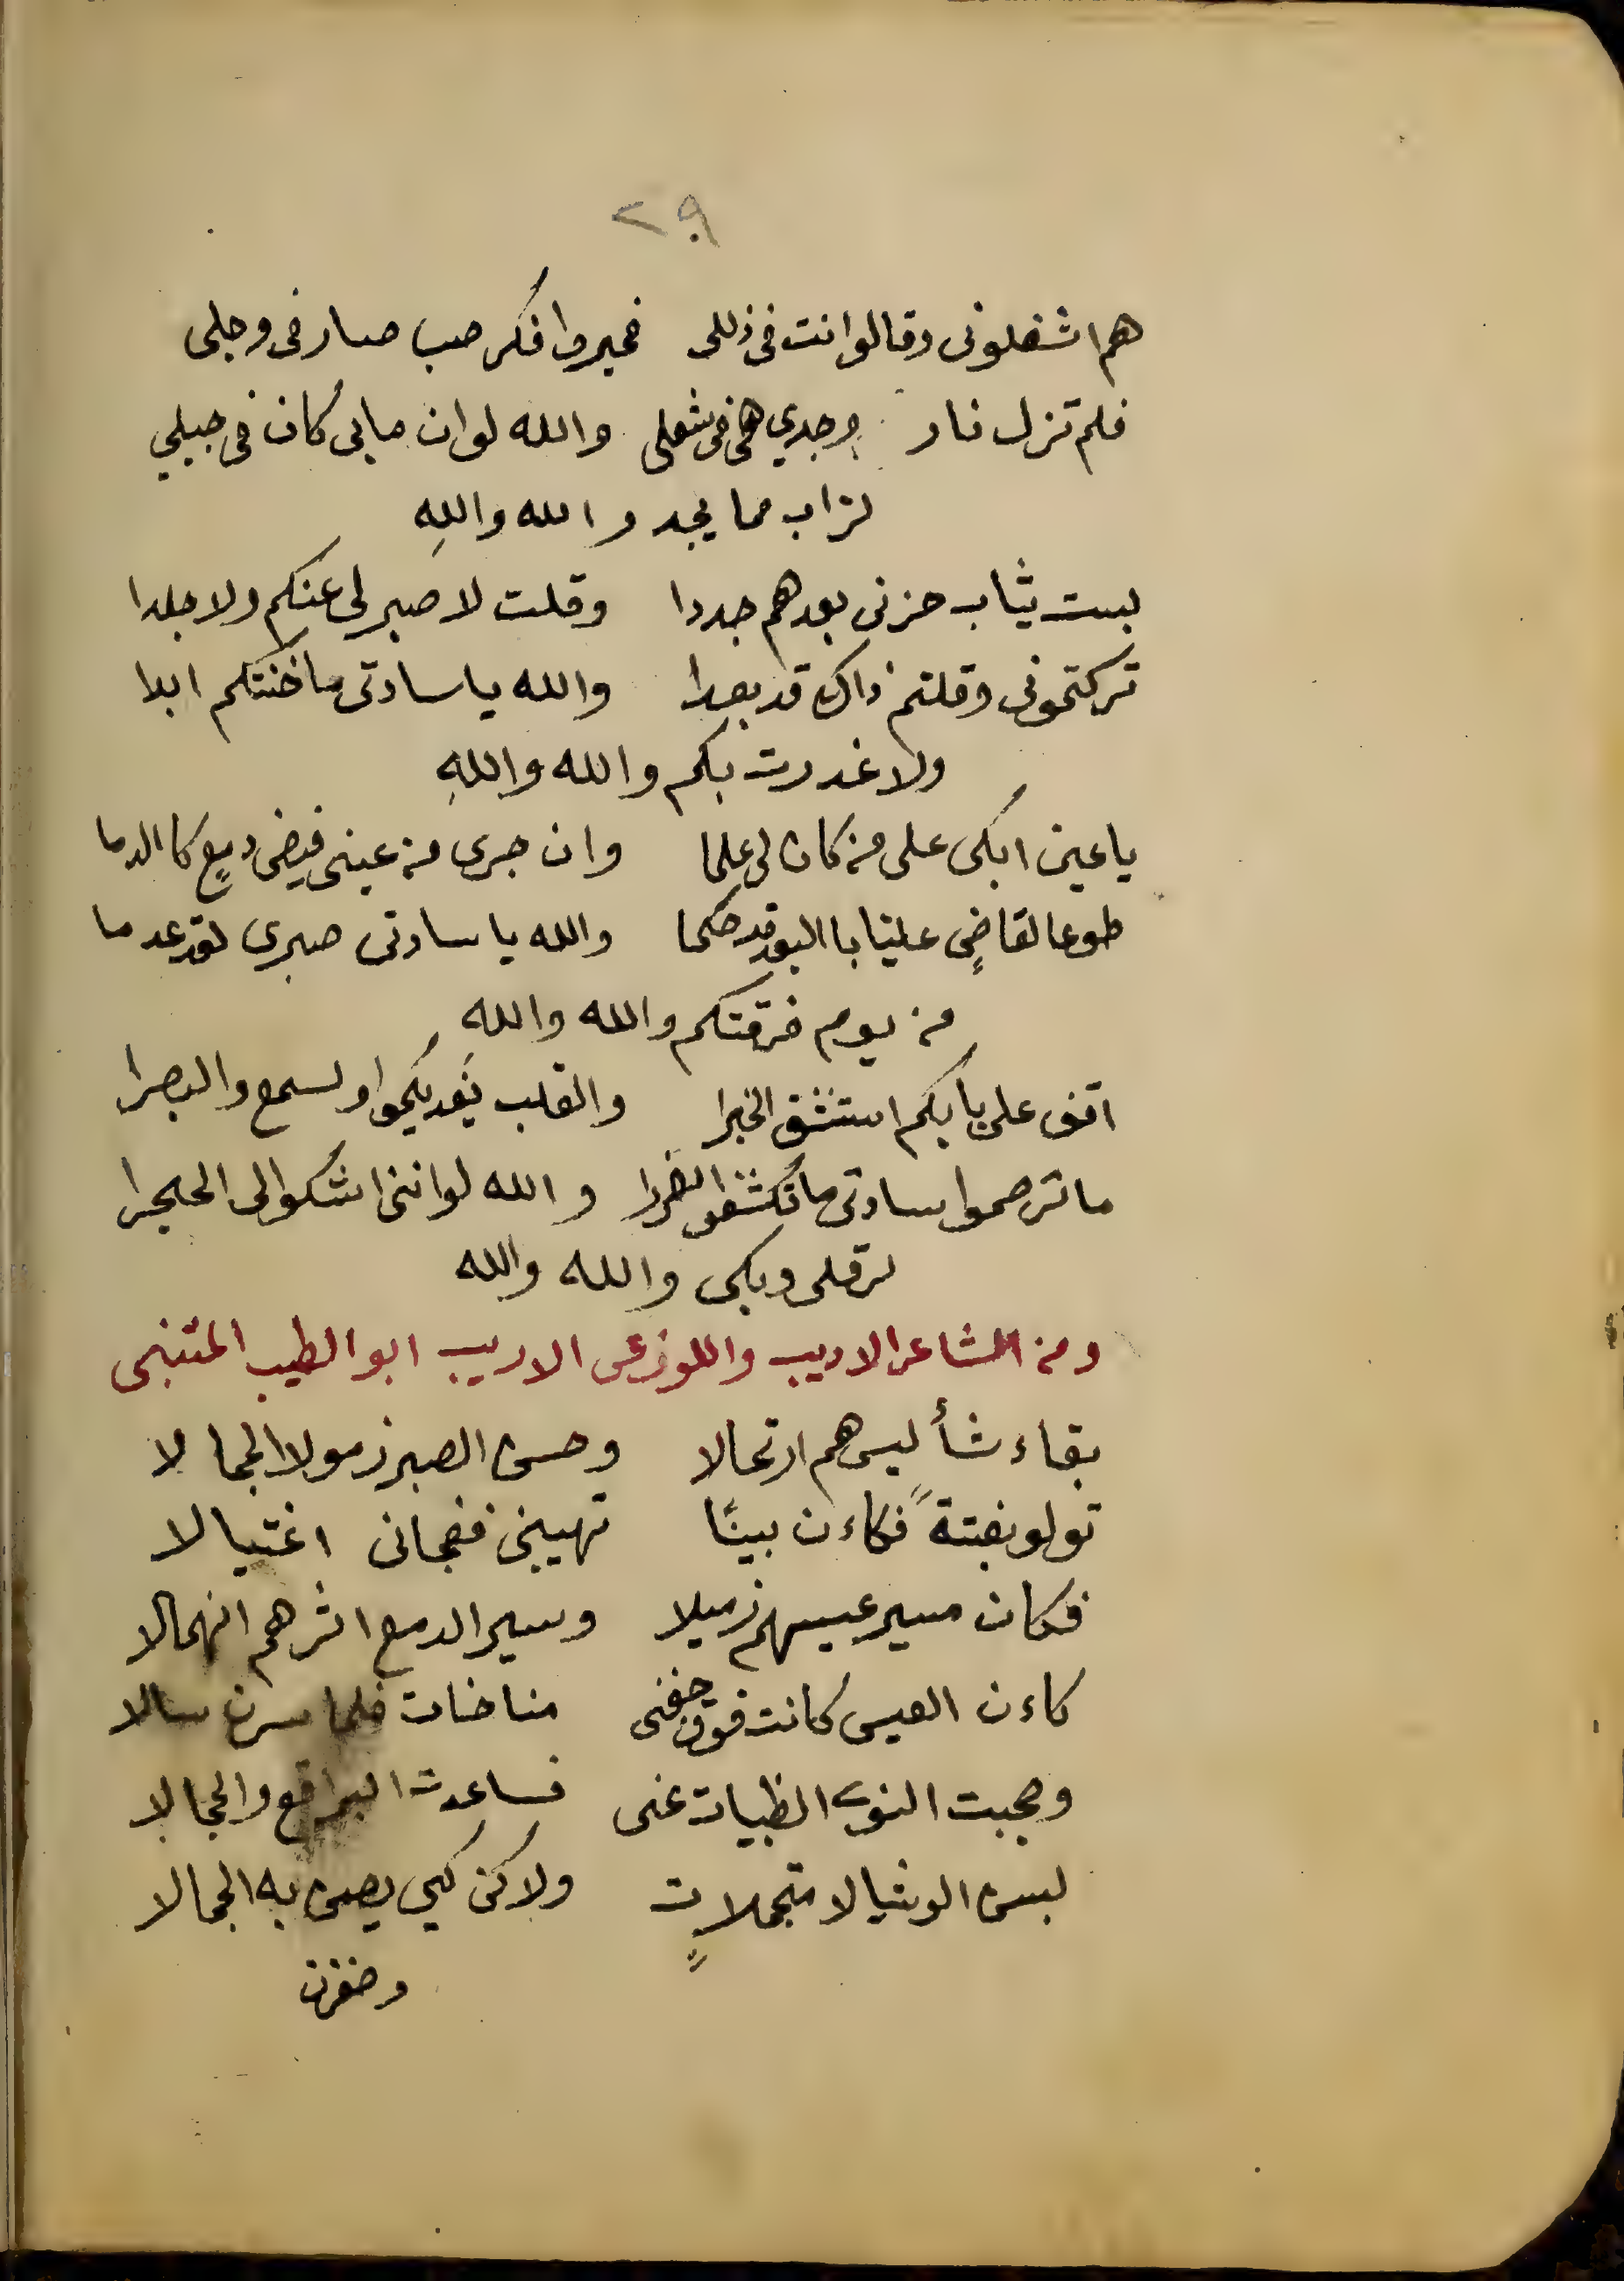 ٢٩
هم اشغلونى وقالوا انت فى زللى فحيروا فكر صب صار فى وجلى
فلم تزل نار وجدي هى فى شعلى والله لو ان مابى كان فى جبلي
لزاب مما يجد والله واللهِ
لبست ثياب حزنى بعدهم جددا وقلت لا صبر لى عنكم ولا جلدا
تركتمونى وقلتم ذاك قد بعدا والله يا سادتى ما خنتكم ابدا
ولا غدرت بكم والله واللهِ
يا عين ابكى على من كان لى علما وان جرى من عينى فيض دمعٍ كا الدما
طوعا لقاضٍى علينا با البعد قد حكما والله يا سادتى صبرى لقد عدما
من يوم فرقتكم والله واللهِ
اقف على بابكم استنشق الخبرا والقلب يَفديكموا ولسمع والبصرا
ما ترحموا سادتى ما تكشفوا الضررا والله لو اننى اشكوا الى الحجرا
لرقلى وبكى والله والله
ومن الشاعر الاديب واللوزعى الاريب ابو الطيب المتنبى
بقاء شأ ليس هم ارتحالا وحسن الصبر زمولا الجمالا
تولو بغتةً فكاءن بينًا تهيبنى ففجانى اغتيالا
فكان مسير عيسهم زميلا وسير الدمع اثرهم انهمالا
كاءن العيس كانت فوق جفنى مناخات فلما سرن سالا
وحجبت النوى الظبيات عنى فساعدت البراقع والحجالا
لبسن الوشيا لا متجملاتٍ ولاكن كي يصن به الجمالا
وضفرن